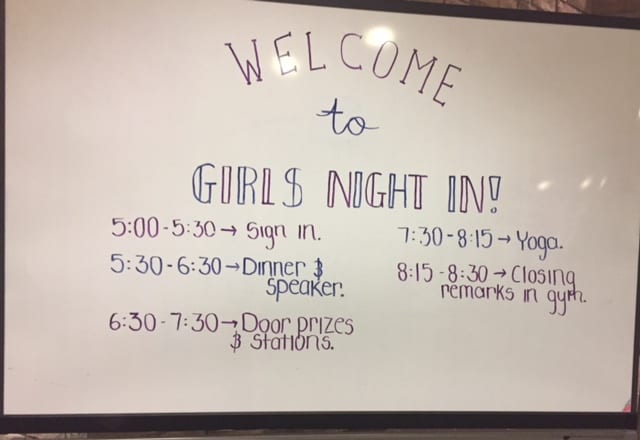 WELCOME
to
GIRLS NIGHT IN!
5:00-5:30→ Sign in.
5:30-6:30→Dinner &
speaker.
6:30-7:30→Door prizes
& stations.
7:30-8:15→Yoga.
8:15-8:30→Closing
remarks in gym.